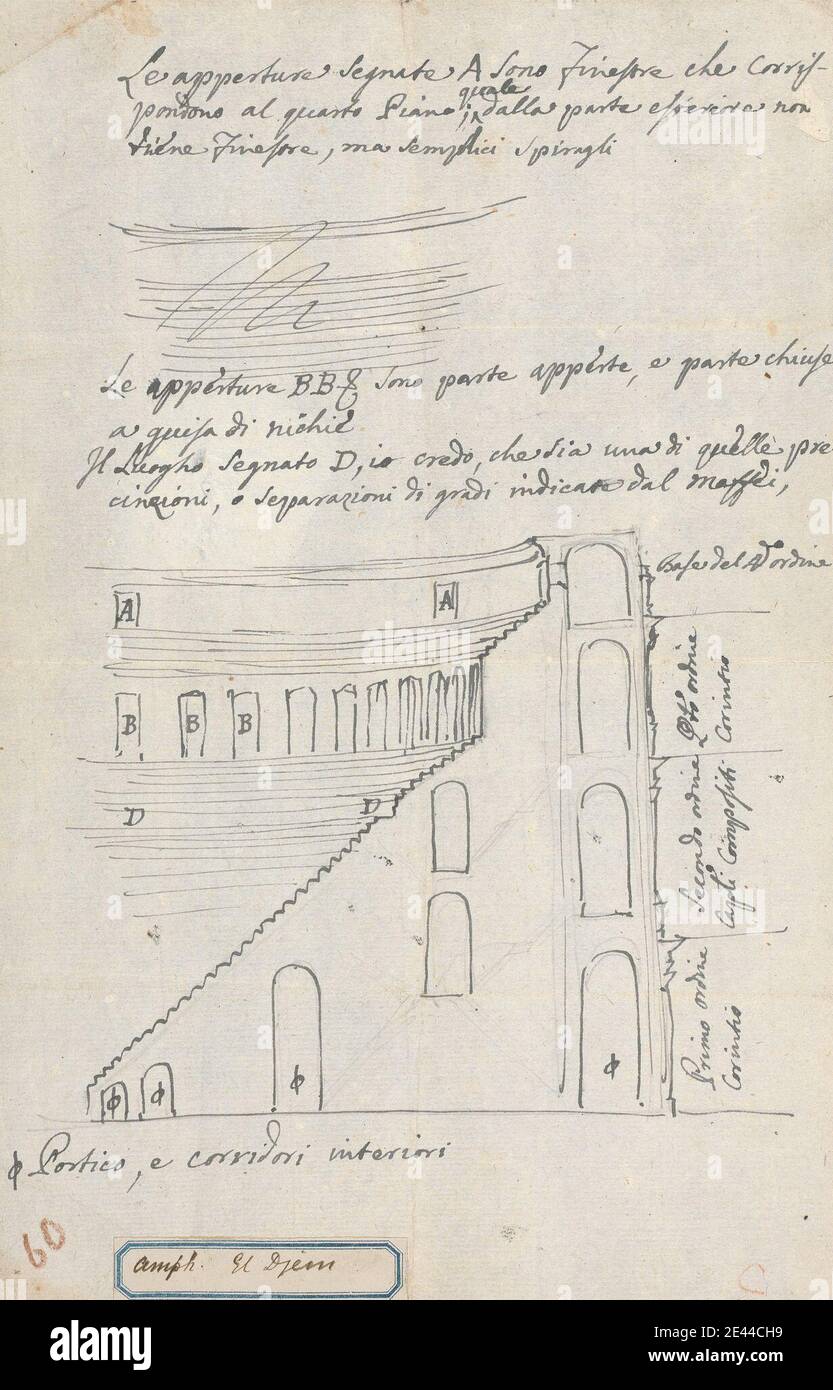 Le apperture segnate A sono finestre che Corris-
pondono al quarto Piano; quale dalla parte esteriore non
tiene finestre, ma semplici spiragli
Le apperture BB& sono parte apperte, e parte chiuse
a guisa di nichie
Il Luogho segnato D, io credo, che sia una di quelle pre
cinzioni, o separazioni di gradi indicate dal Maffei,
Base del 4to ordine
A
A
B
B
B
D
D
ordine
Corintio
Secondo ordine
Compositi
Primo ordine
Corintio
ϕ
ϕ
ϕ
ϕ
ϕ Portico, e corridori interiori
60
amph. El Djem
alamy
Image ID: 2E44CH9
www.alamy.com